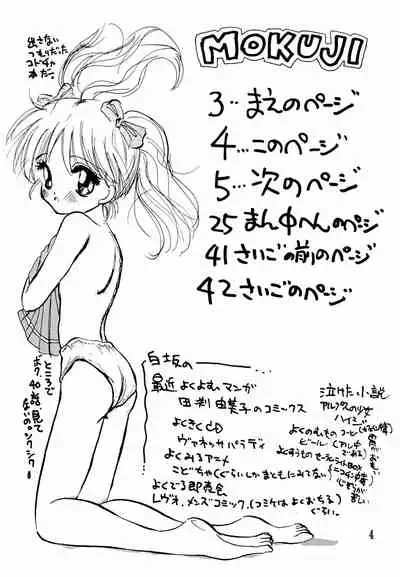 MOKUJI
出さない
つもりだった
コドチャ
本だー。
3‥まえのページ
4…このページ
5…次のページ
25 まん中へんのページ
41 さいごの前のページ
42 さいごのページ
ところで
ボク、40話、見て
ないの。シクシク
白坂の
最近よくよむマンガ
田村由美子のコミックス
よくきくCD
ヴァネッサパラディ
よくみるアニメ
こどちゃ(ぐらいしかまともにみてない)
よくでる即売会
レヴォ、メンズコミック。(コミケはよくおちる)
ぐらい。
泣けた小説
アルプスの少女
ハイジ
よくのむもの コーヒー
ビール
よくすうもの セーラムライトBOX
4